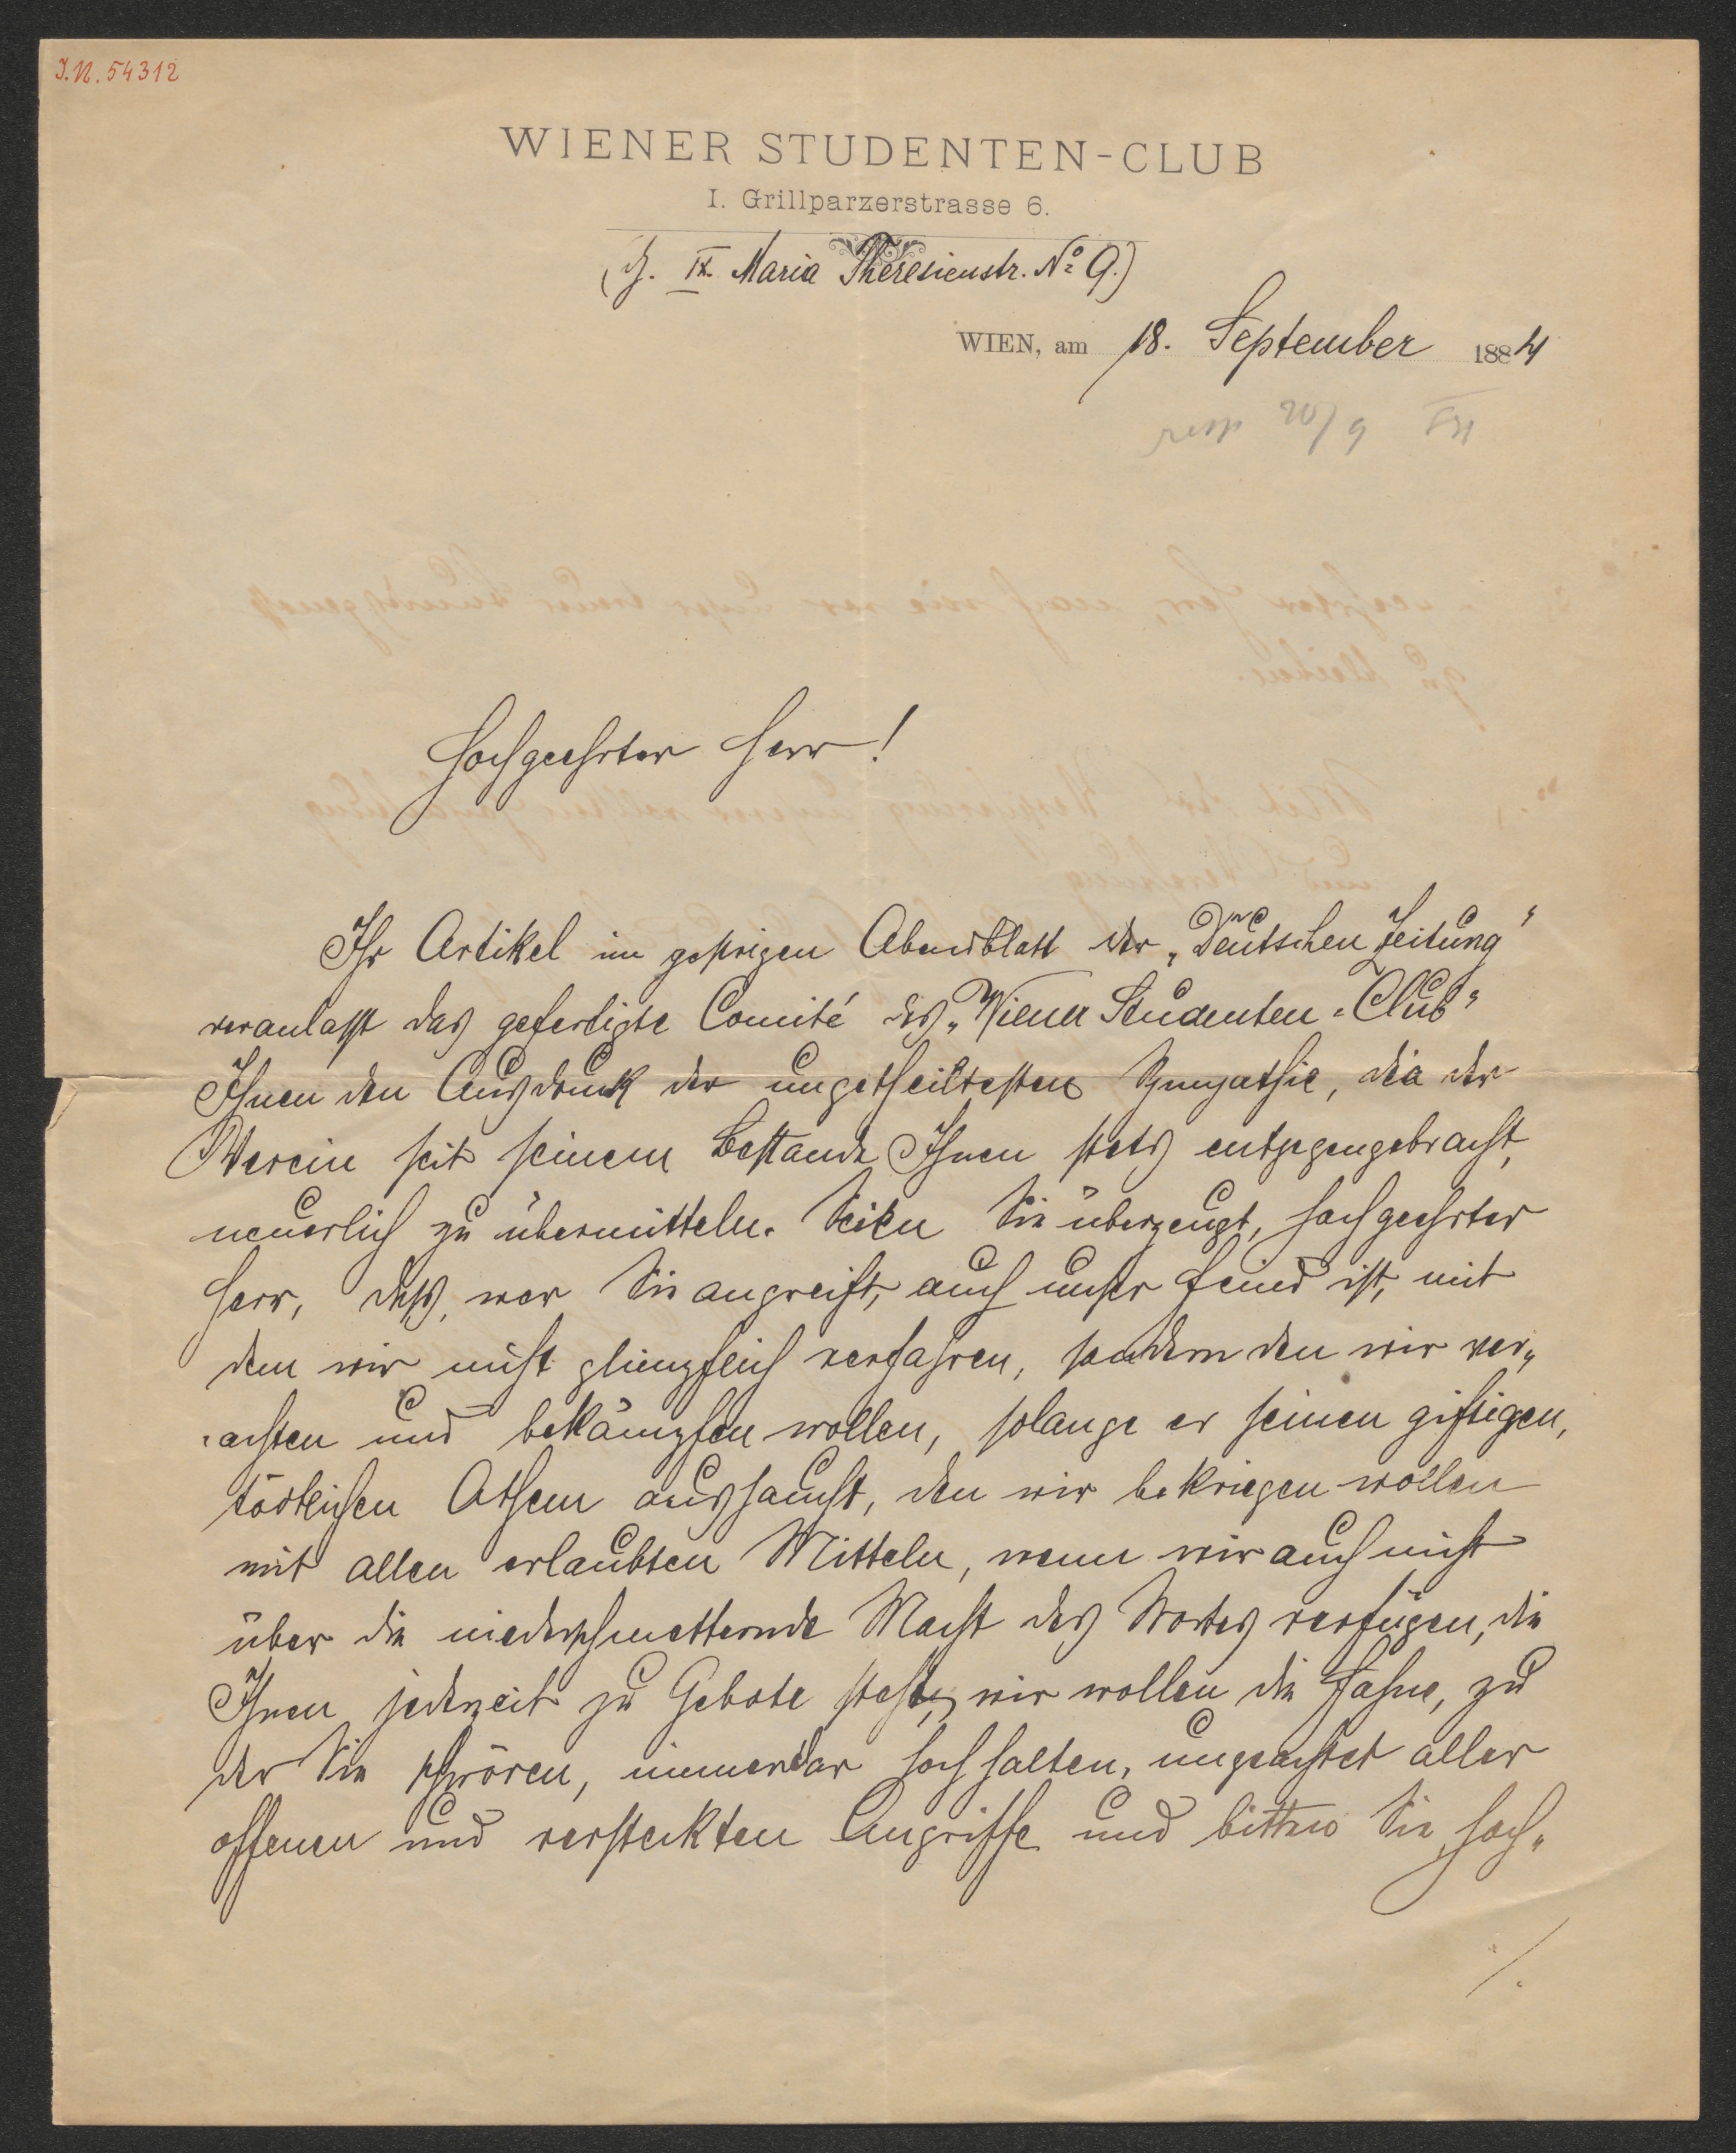 I.N. 54312
WIENER STUDENTEN-CLUB
I. Grillparzerstrasse 6.
(z. IX. Maria Theresienstr. No 9.)
WIEN, am 18. September 1884
resp 20/9
Hochgeehrter Herr!
Ihr Artikel im gestrigen Abendblatt der „Deutschen Zeitung"
veranlasst das gefertigte Comité des „Wiener Studenten-Club"
Ihnen den Ausdruck der ungetheiltesten Sympathie, die der
Verein seit seinem Bestande Ihnen stets entgegengebracht,
neuerlich zu übermitteln. Seien Sie überzeugt, hochgeehrter
Herr, dass, wer Sie angreift, auch unser Feind ist, mit
dem wir nicht glimpflich verfahren, sondern den wir ver„
achten und bekämpfen wollen, solange er seinen giftigen,
tödtlichen Athem aushaucht, den wir bekriegen wollen
mit allen erlaubten Mitteln, wenn wir auch nicht
über die niederschmetternde Macht des Wortes verfügen, die
Ihnen jederzeit zu Gebote steht; wir wollen die Fahne, zu
der Sie schwören, immerdar hoch halten, ungeachtet aller
offenen und versteckten Angriffe und bitten Sie, hoch„
./.